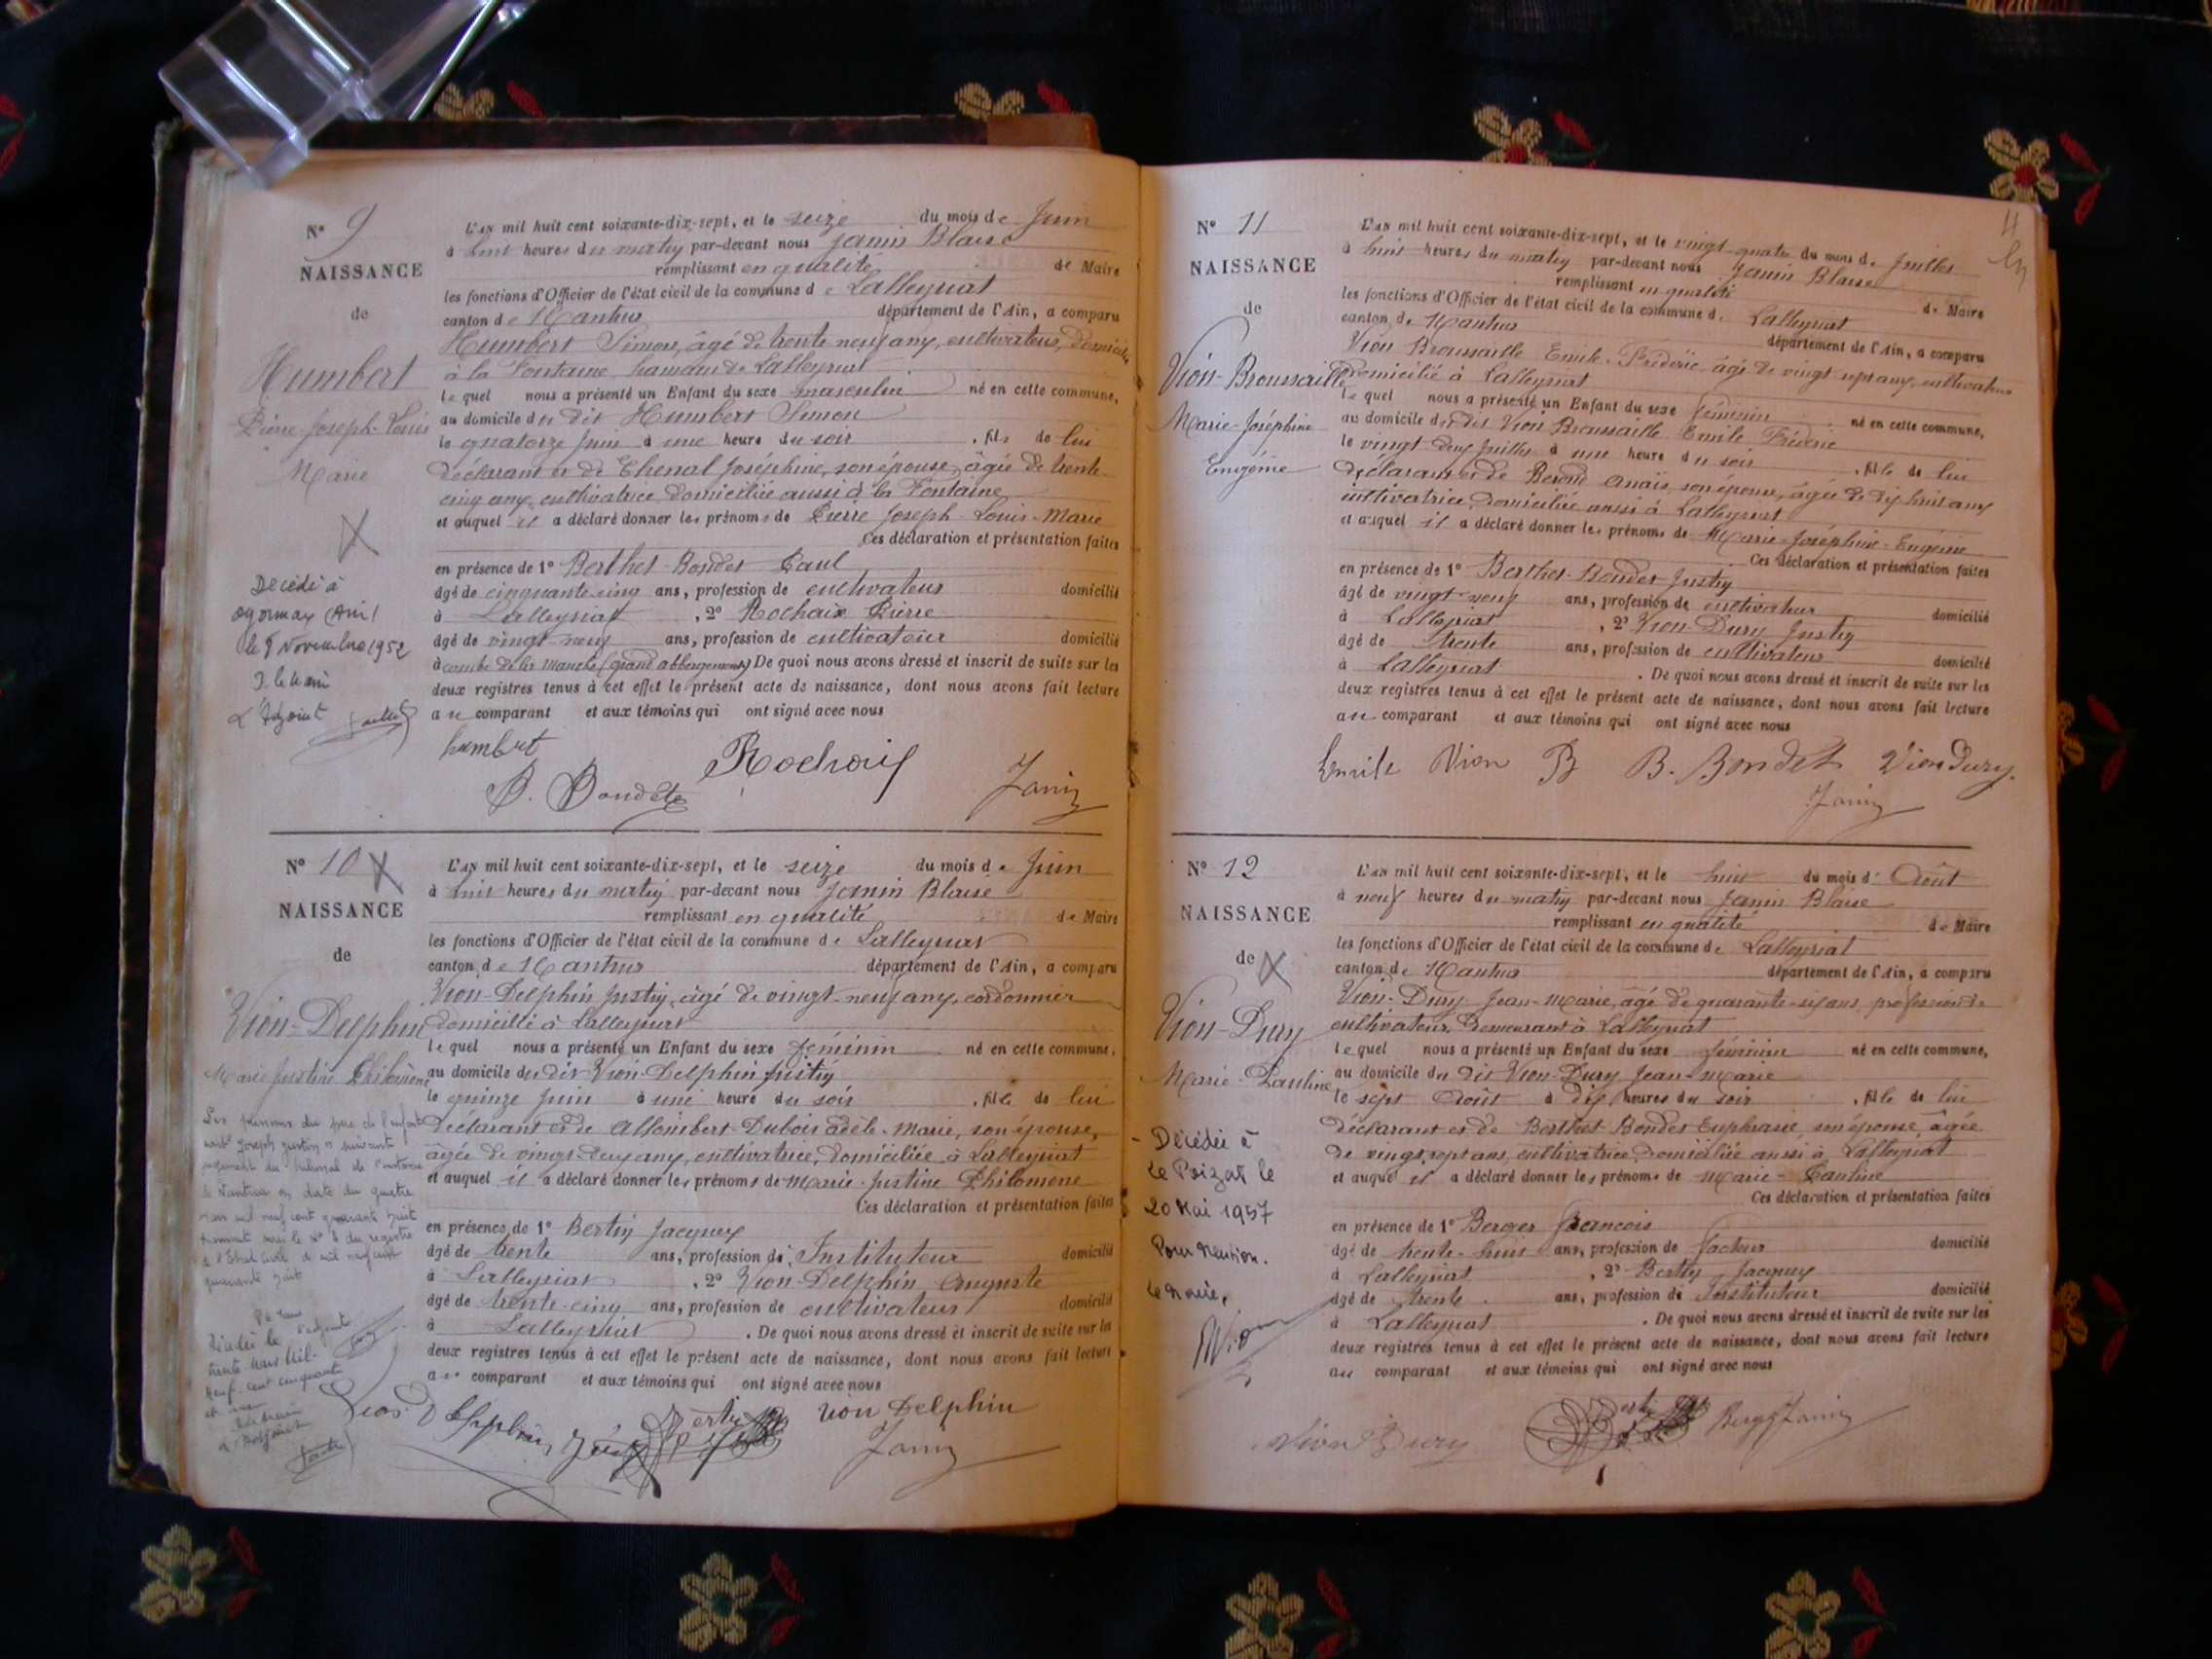 N° 9
NAISSANCE
de
Humbert
Pierre-Joseph-Louis
Marie
Décédé à
Oyonnax (Ain)
le 8 Novembre 1952
L'Adjoint
L'AN mil huit cent soixante-dix-sept, et le seize du mois de Juin
à huit heures du matin par-devant nous Janin Blaise
remplissant en qualité de Maire
les fonctions d'Officier de l'état civil de la commune de Lalleyriat
canton de Nantua département de l'Ain, a comparu
Humbert Simon, âgé de trente neuf ans, cultivateur, domicilié
à la Fontaine hameau de Lalleyriat
lequel nous a présenté un Enfant du sexe masculin né en cette commune,
au domicile du dit Humbert Simon
le quatorze Juin à une heure du soir, fils de lui
déclarant et de Chenal Joséphine, son épouse, âgée de trente-
cinq ans, cultivatrice domiciliée aussi à la Fontaine
et auquel il a déclaré donner les prénoms de Pierre Joseph-Louis-Marie
Ces déclaration et présentation faites
en présence de 1° Berthet-Bondet Paul
âgé de cinquante-cinq ans, profession de cultivateur domicilié
à Lalleyriat, 2° Rochaix Pierre
âgé de vingt-neuf ans, profession de cultivateur domicilié
à combe de la Manche (grand abbergement) De quoi nous avons dressé et inscrit de suite sur les
deux registres tenus à cet effet le présent acte de naissance, dont nous avons fait lecture
au comparant et aux témoins qui ont signé avec nous
humbert
B. Bondet
Rochaix
Janin
N° 10
NAISSANCE
de
Vion-Delphin
Marie Justine Philomène
Les prénoms du père de l'enfant
sont "Joseph Justin" suivant
jugement du tribunal de l'instance
de Nantua en date du quatre
mars mil neuf cent quarante huit
transcrit sous le N° 8 du registre
de l'Etat Civil de mil neuf cent
quarante huit
Décédée le
trente mars Mil-
neuf-cent cinquante
et
L'AN mil huit cent soixante-dix-sept, et le seize du mois de Juin
à huit heures du matin par-devant nous Janin Blaise
remplissant en qualité de Maire
les fonctions d'Officier de l'état civil de la commune de Lalleyriat
canton de Nantua département de l'Ain, a comparu
Vion-Delphin Justin, âgé de vingt-neuf ans, cordonnier
domicilié à Lalleyriat
lequel nous a présenté un Enfant du sexe féminin né en cette commune,
au domicile du dit Vion-Delphin Justin
le quinze Juin à une heure du soir, fille de lui
déclarant et de Allombert-Dubois adèle-Marie, son épouse,
âgée de vingt deux ans, cultivatrice, domiciliée à Lalleyriat
et auquel il a déclaré donner les prénoms de Marie-Justine Philomène
Ces déclaration et présentation faites
en présence de 1° Bertin Jacques
âgé de trente ans, profession d'Instituteur domicilié
à Lalleyriat, 2° Vion-Delphin Auguste
âgé de trente-cinq ans, profession de cultivateur domicilié
à Lalleyriat. De quoi nous avons dressé et inscrit de suite sur les
deux registres tenus à cet effet le présent acte de naissance, dont nous avons fait lecture
au comparant et aux témoins qui ont signé avec nous
Bertin
Vion Delphin
Janin
N° 11
NAISSANCE
de
Vion-Broussaille
Marie-Joséphine
Eugénie
L'AN mil huit cent soixante-dix-sept, et le vingt-quatre du mois de Juillet
à huit heures du matin par-devant nous Janin Blaise
remplissant en qualité de Maire
les fonctions d'Officier de l'état civil de la commune de Lalleyriat
canton de Nantua département de l'Ain, a comparu
Vion Broussaille Emile-Fréderic âgé de vingt sept ans, cultivateur
domicilié à Lalleyriat
lequel nous a présenté un Enfant du sexe féminin né en cette commune,
au domicile du dit Vion Broussaille Emile Fréderic
le vingt-deux Juillet à une heure du soir, fille de lui
déclarant et de Berod Anaïs, son épouse, âgée de dix huit ans
cultivatrice, domiciliée aussi à Lalleyriat
et auquel il a déclaré donner les prénoms de Marie-Joséphine-Eugénie
Ces déclaration et présentation faites
en présence de 1° Berthet-Bondet Justin
âgé de vingt-neuf ans, profession de cultivateur domicilié
à Lalleyriat, 2° Vion-Dury Justin
âgé de trente ans, profession de cultivateur domicilié
à Lalleyriat. De quoi nous avons dressé et inscrit de suite sur les
deux registres tenus à cet effet le présent acte de naissance, dont nous avons fait lecture
au comparant et aux témoins qui ont signé avec nous
Emile Vion B B. Bondet Vion Dury
Janin
N° 12
NAISSANCE
de
Vion-Dury
Marie-Pauline
- Décédée à
Le Poizat le
20 Mai 1957
Pour Mention.
Le Maire,
L'AN mil huit cent soixante-dix-sept, et le huit du mois d'Août
à neuf heures du matin par-devant nous Janin Blaise
remplissant en qualité de Maire
les fonctions d'Officier de l'état civil de la commune de Lalleyriat
canton de Nantua département de l'Ain, a comparu
Vion-Dury Jean-Marie, âgé de quarante-six ans, profession de
cultivateur, demeurant à Lalleyriat
lequel nous a présenté un Enfant du sexe féminin né en cette commune,
au domicile du dit Vion-Dury Jean-Marie
le sept Août à dix heures du soir, fille de lui
déclarant et de Berthet-Bondet Euphrasie, son épouse, âgée
de vingt sept ans, cultivatrice, domiciliée aussi à Lalleyriat
et auquel il a déclaré donner les prénoms de Marie-Pauline
Ces déclaration et présentation faites
en présence de 1° Berger François
âgé de trente-huit ans, profession de facteur domicilié
à Lalleyriat, 2° Bertin Jacques
âgé de trente ans, profession d'Instituteur domicilié
à Lalleyriat. De quoi nous avons dressé et inscrit de suite sur les
deux registres tenus à cet effet le présent acte de naissance, dont nous avons fait lecture
au comparant et aux témoins qui ont signé avec nous
Vion Dury
Janin